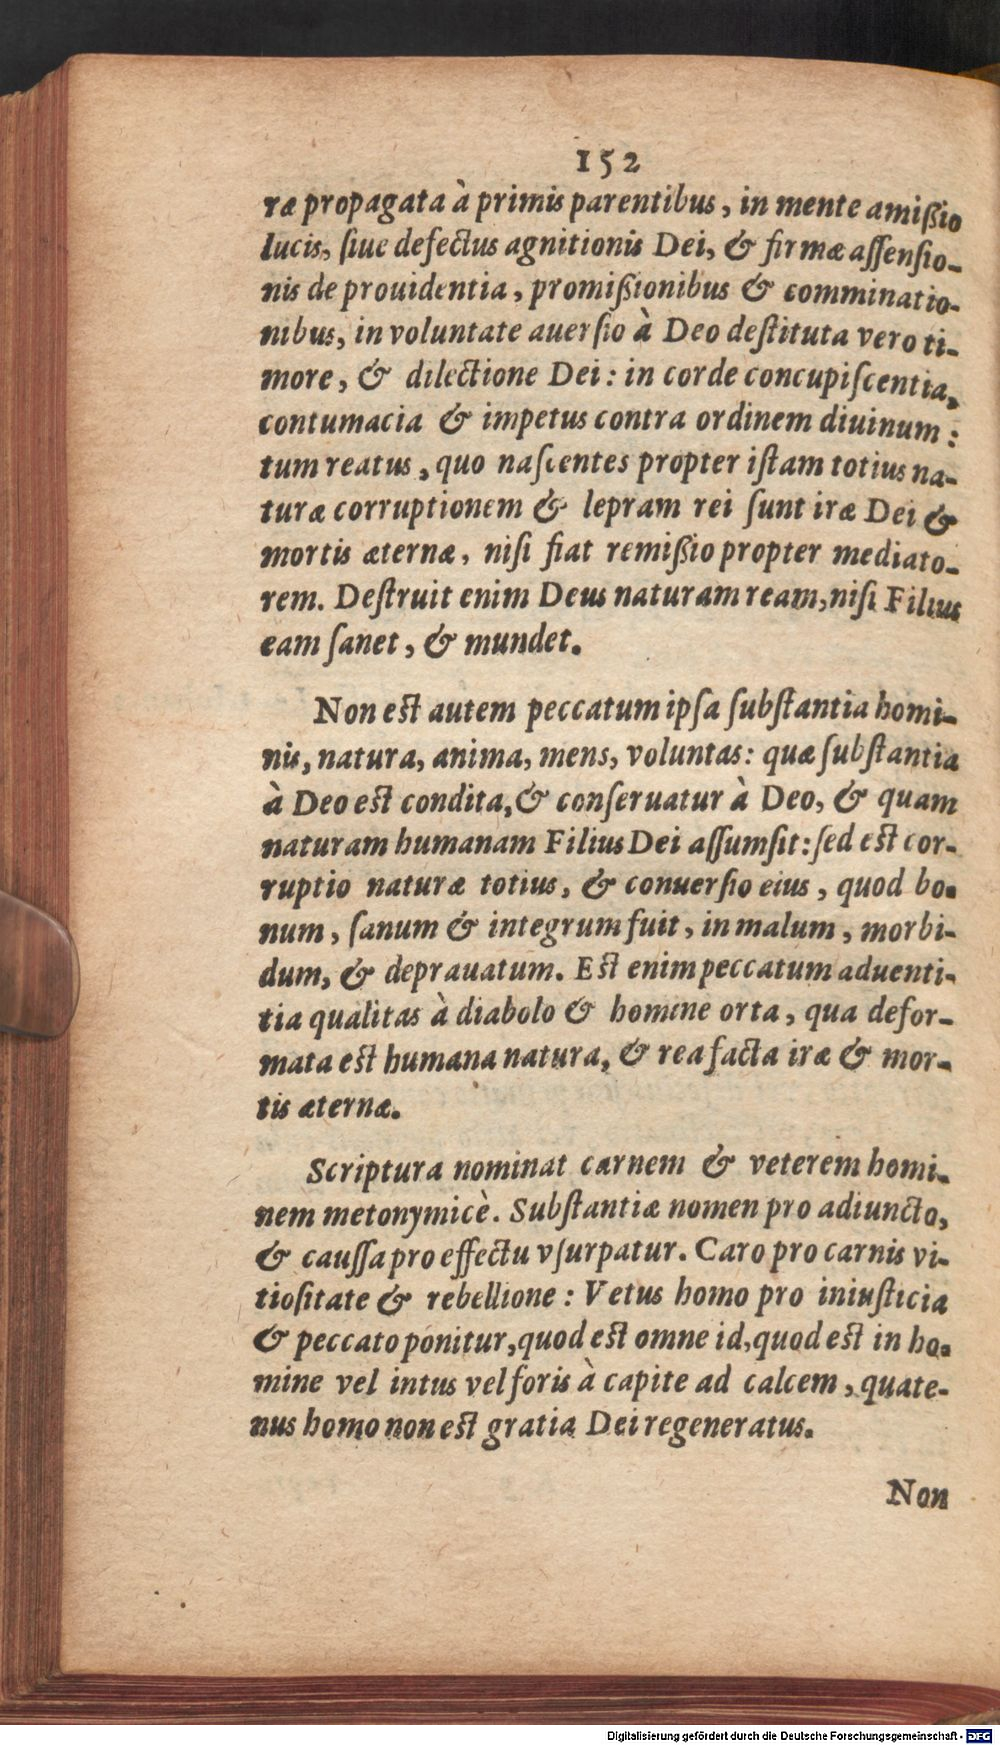 152
ræ propagata à primis parentibus, in mente amißio
lucis, ſiue defectus agnitionis Dei, & firmæ aſſenſio-
nis de prouidentia, promißionibus & comminatio-
nibus, in voluntate auerſio à Deo deſtituta vero ti-
more, & dilectione Dei: in corde concupiſcentia,
contumacia & impetus contra ordinem diuinum:
tum reatus, quo naſcentes propter iſtam totius na-
turæ corruptionem & lepram rei ſunt iræ Dei &
mortis æternæ, niſi fiat remißio propter mediato-
rem. Deſtruit enim Deus naturam ream, niſi Filius
eam ſanet, & mundet.
Non est autem peccatum ipſa ſubſtantia homi-
nis, natura, anima, mens, voluntas: quæ ſubſtantia
à Deo est condita, & conſeruatur à Deo, & quam
naturam humanam Filius Dei aſſumſit: ſed est cor-
ruptio naturæ totius, & conuerſio eius, quod bo-
num, ſanum & integrum fuit, in malum, morbi-
dum, & deprauatum. Est enim peccatum aduenti-
tia qualitas à diabolo & homine orta, qua defor-
mata est humana natura, & rea facta iræ & mor-
tis æternæ.
Scriptura nominat carnem & veterem homi-
nem metonymicè. Subſtantiæ nomen pro adiuncto,
& cauſſa pro effectu vſurpatur. Caro pro carnis vi-
tioſitate & rebellione: Vetus homo pro iniuſticia
& peccato ponitur, quod est omne id, quod est in ho-
mine vel intus vel foris à capite ad calcem, quate-
nus homo non est gratia Dei regeneratus.
Non
Digitalisierung gefördert durch die Deutsche Forschungsgemeinschaft - DFG